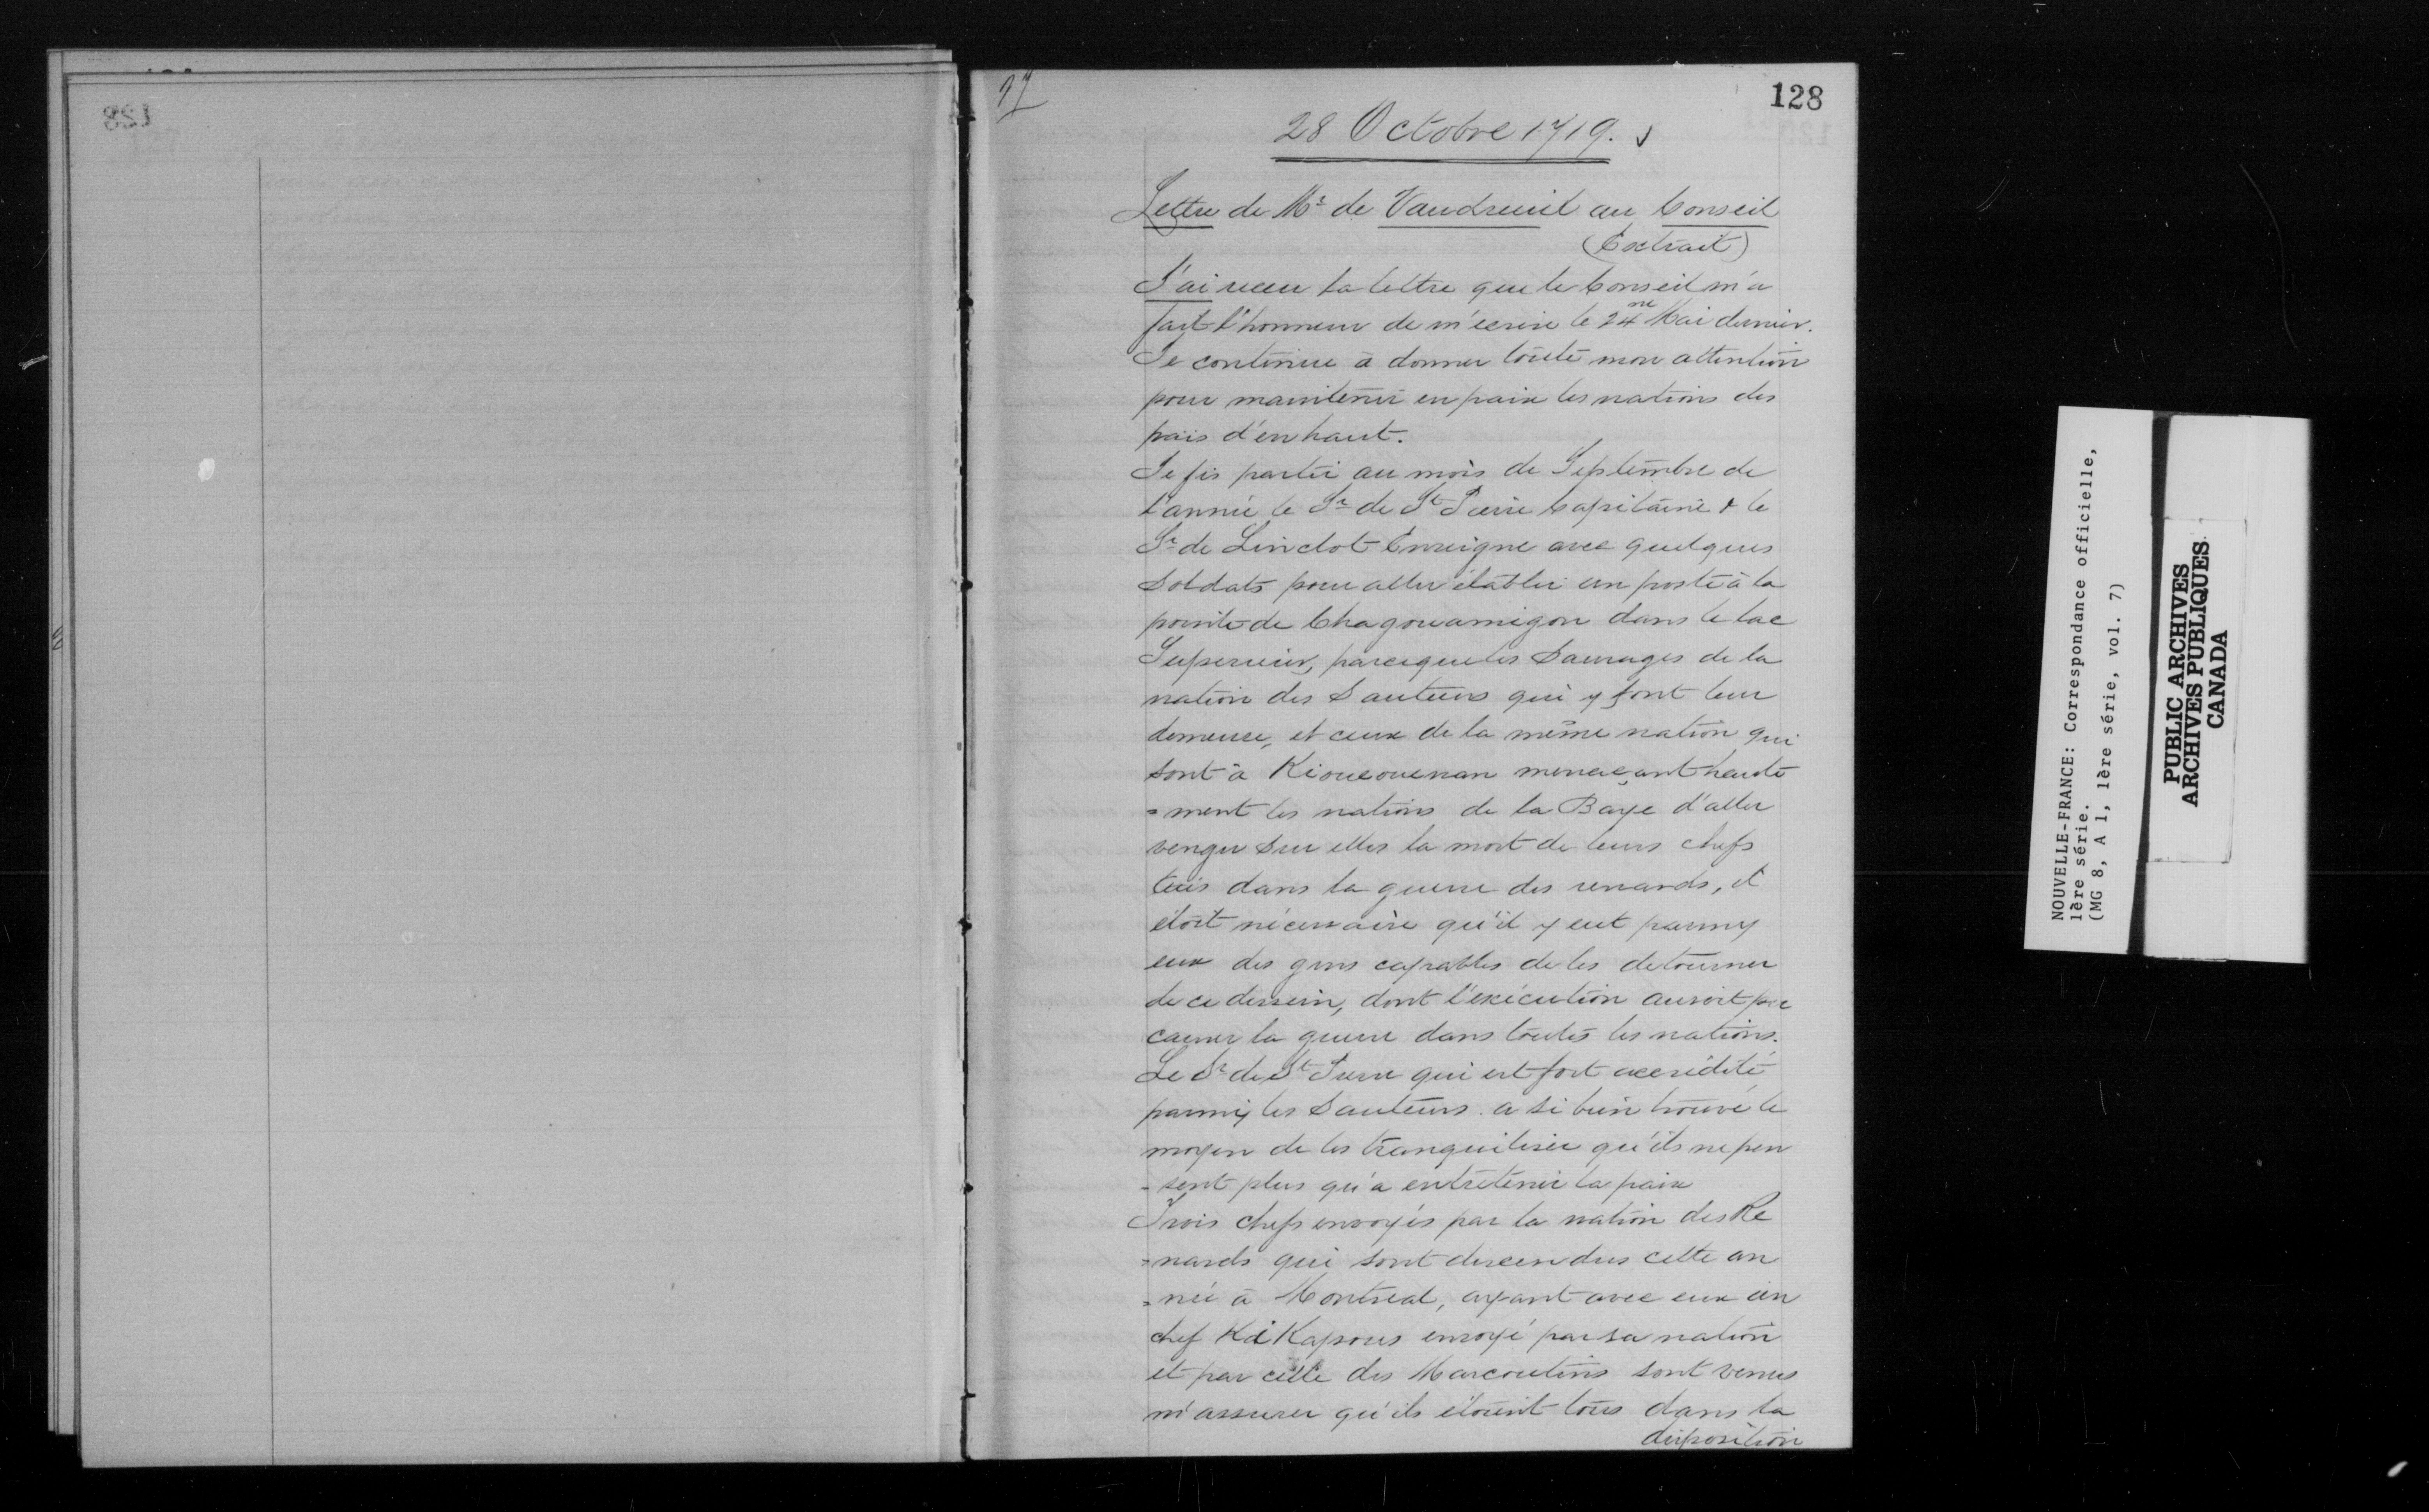 128
28 Octobre 1719.
Lettre de Mr de Vaudreuil au Conseil
(Extrait)
J'ai receu la lettre que le Conseil m'a
fait l'honneur de m'ecrire le 24me Mai dernier.
Je continue à donner toute mon attention
pour maintenir en paix les nations des
païs d'en haut.
Je fis partir au mois de Septembre de
l'année le Sr de St Pierre Capitaine & le
Sr de Linctot Enseigne avec quelques
Soldats pour aller établir un poste à la
pointe de Chagouamigon dans le lac
Superieur, parceque les Sauvages de la
nation des Sauteurs qui y font leur
demeure, et ceux de la même nation qui
sont à Kioueouenan menaçant haute
=ment les nations de la Baye d'aller
venger sur elles la mort de leurs chefs
tués dans la guerre des renards, il
étoit nécessaire qu'il y eut parmy
eux des gens capables de les detourner
de ce dessein, dont l'exécution auroit pu
causer la guerre dans toutes les nations.
Le Sr de St Pierre qui est fort accrédité
parmy les Sauteurs a si bien trouvé le
moyen de les tranquiliser qu'ils ne pen
-sent plus qu'a entretenir la paix
Trois chefs envoyés par la nation des Re
=nards qui sont descendus cette an
=née à Montreal, ayant avec eux un
chef KiKapous envoyé par sa nation
et par celle des Mascoutins sont venus
m'assurer qu'ils étoient tous dans la
disposition
NOUVELLE-FRANCE: Correspondance officielle,
1ère série.
(MG 8, A 1, 1ère série, vol. 7)
PUBLIC ARCHIVES
ARCHIVES PUBLIQUES
CANADA